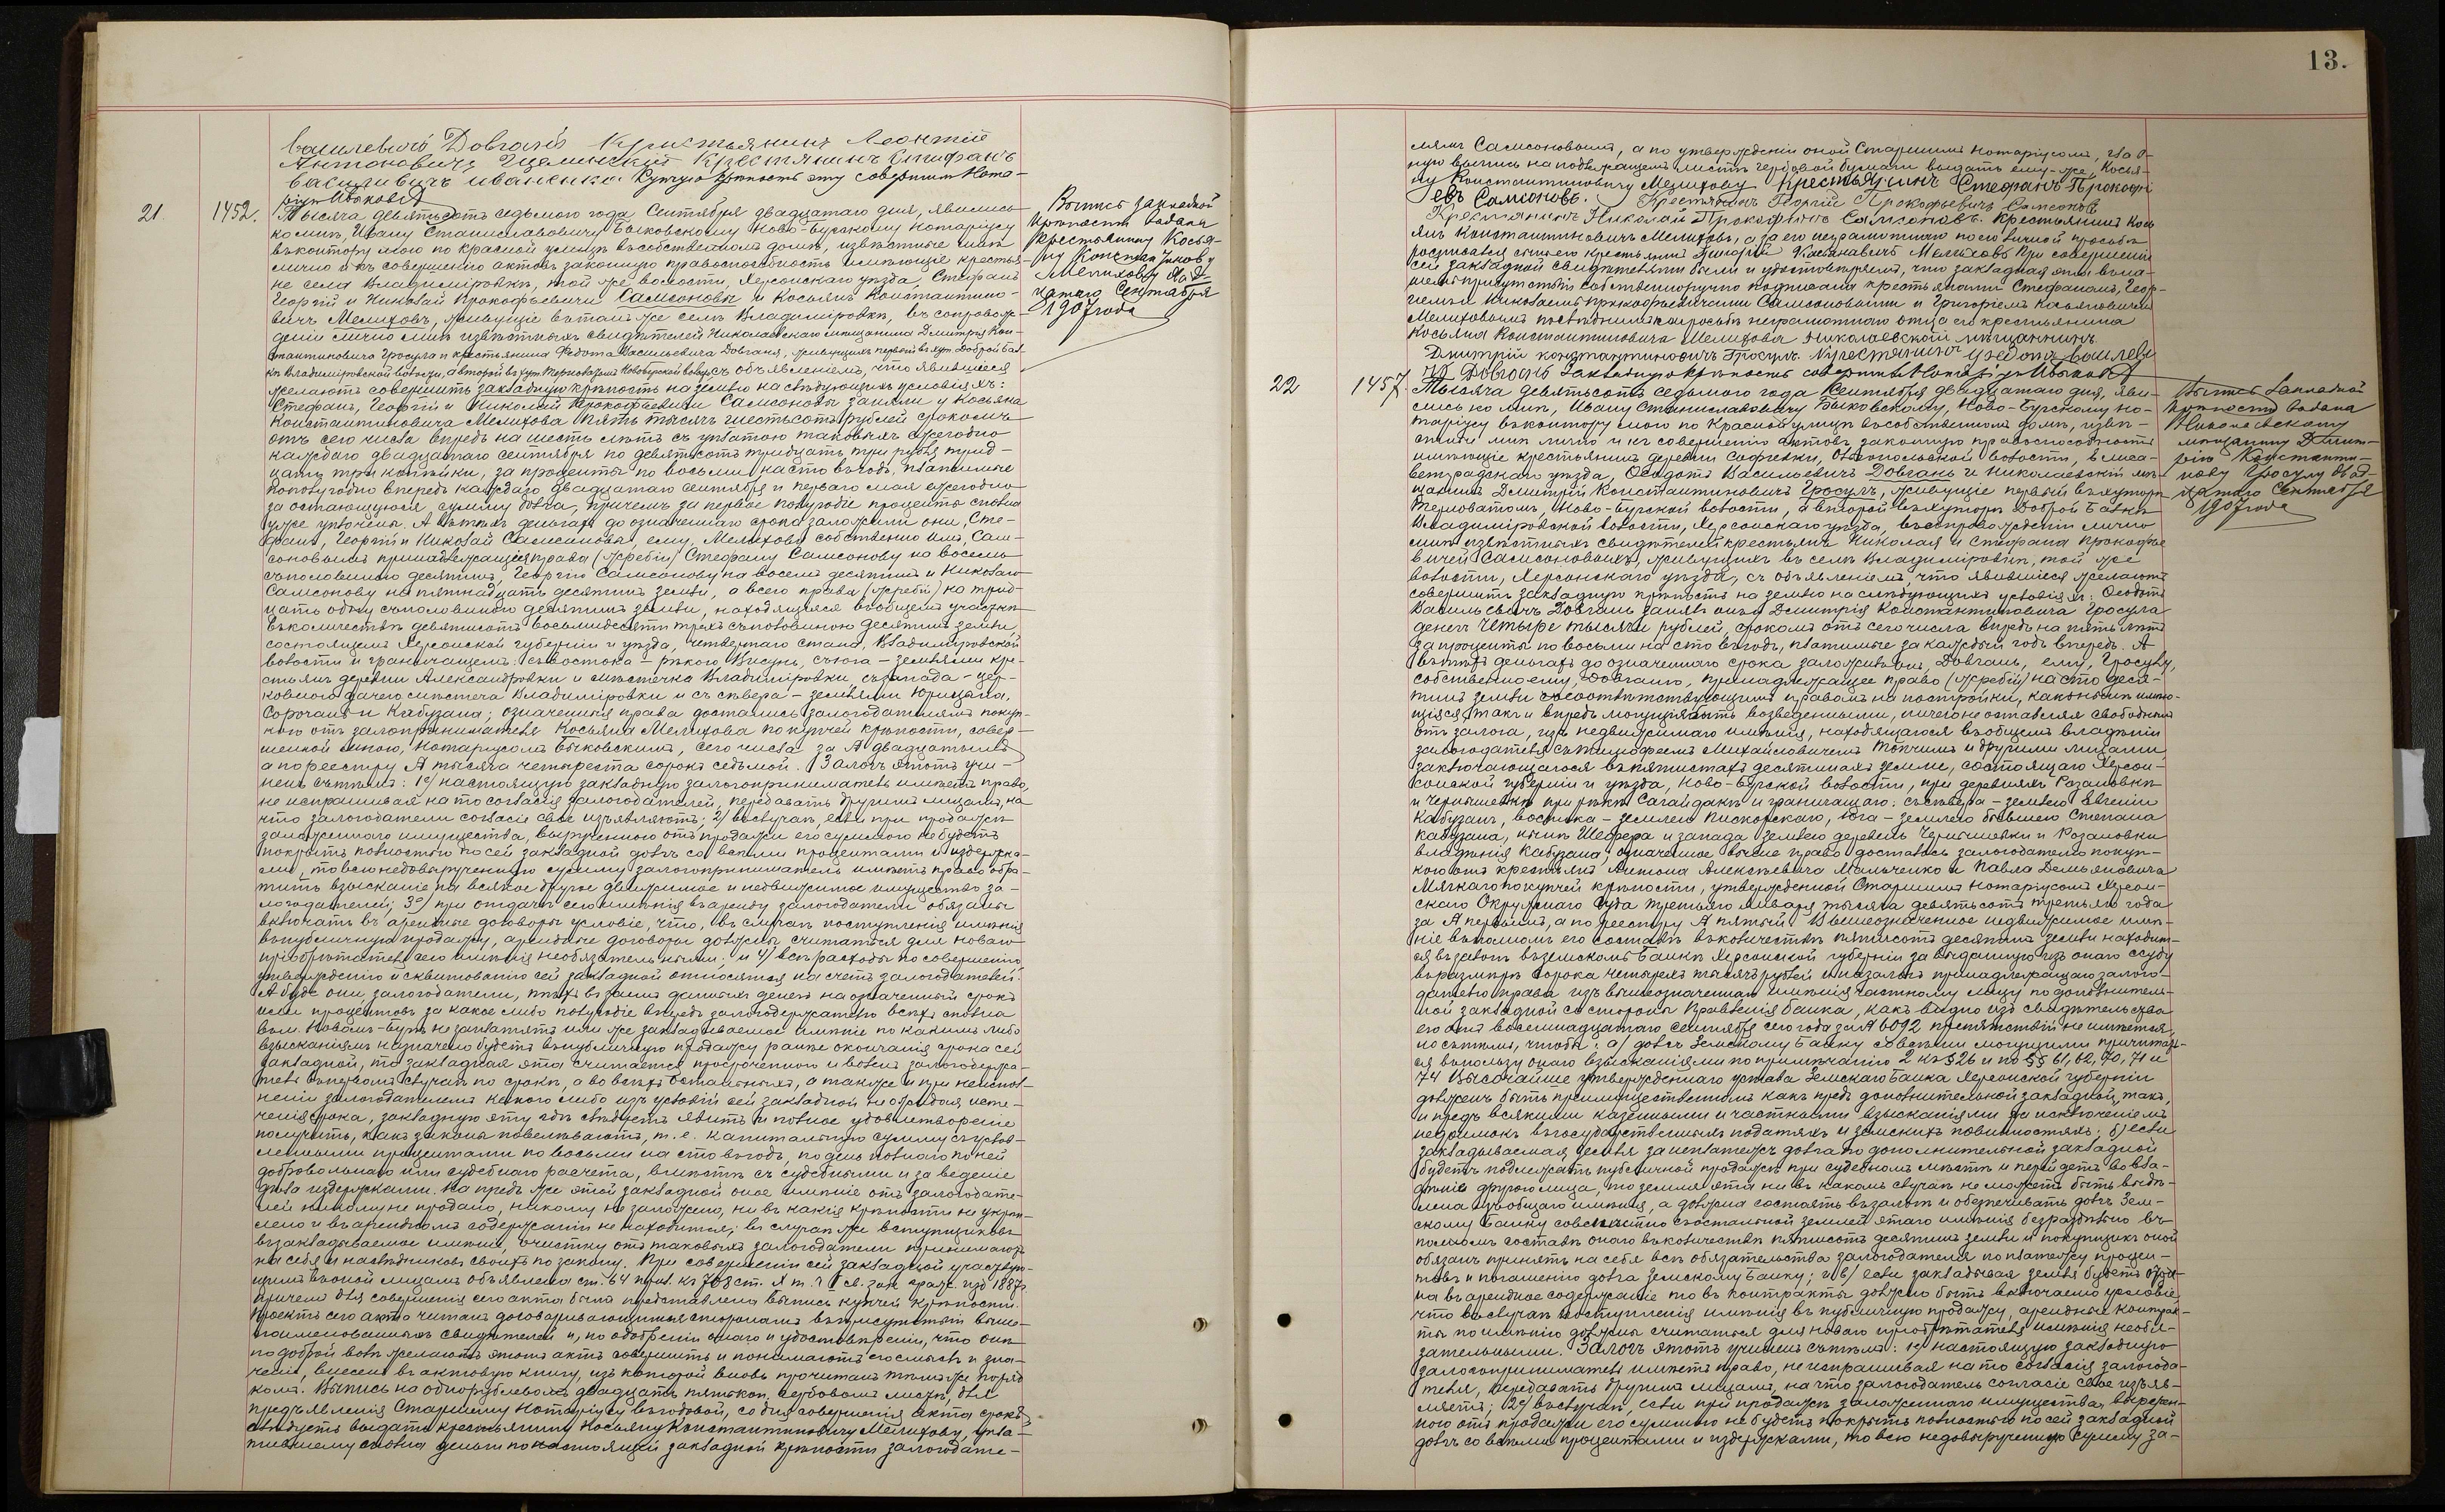 13.
Васильевичъ Довгань Крестьянинъ Леонтій
Антоновичъ Крестьянинъ Стифанъ
Василивичъ Иваненко Купчую крѣпость эту совершилъ Нота-
ріусъ Быковскій
21 1452. Тысяча девятьсотъ седьмого года Сентября двадцатаго дня, явились
ко мнѣ, Ивану Станиславовичу Быковскому Ново-Бугскому Нотаріусу
въ контору мою по Красной улицѣ въ собственномъ домѣ, извѣстные мнѣ
лично и къ совершенію актовъ законную правоспособность имѣющіе крестья-
не села Владиміровки, той же волости, Херсонскаго уѣзда, Стефанъ
Георгій и Николай Прокофьевичи Самсоновы и Косьянъ Константино-
вичъ Мелиховъ, живущіе въ томъ же селѣ Владиміровкѣ, въ сопровож-
деніи лично мнѣ извѣстныхъ свидѣтелей Николаевскаго мѣщанина Дмитрія Кон-
стантиновича Гросула и крестьянина Федота Васильевича Довганя, живущихъ первый въ хут. Доброй Бал-
кѣ Владиміровской волости, а второй въ хут. Терноватомъ Новобугской волости съ объявленіемъ, что явившіеся
желаютъ совершить закладную крѣпость на землю на слѣдующихъ условіяхъ:
Стефанъ, Георгій и Николай Прокофьевичи Самсоновы заняли у Косьяна
Константиновича Мелихова пять тысячъ шестьсотъ рублей срокомъ
отъ сего числа впредь на шесть лѣтъ съ уплатою таковыхъ ежегодно
каждаго двадцатаго сентября по девятьсотъ тридцать три рубля трид-
цать три копѣйки, за проценты по восьми на сто въ годъ, платимые
полугодно впередъ каждаго двадцатаго сентября и перваго мая ежегодно
за остающуюся сумму долга, причемъ за первое полугодіе проценты сполна
уже уплочены. А въ тѣхъ деньгахъ до означеннаго срока заложили они, Сте-
фанъ, Георгій и Николай Самсоновы, ему, Мелихову собственно имъ, Сам-
соновымъ принадлежащія права (жребіи) Стефану Самсонову на восемь
съ половиною десятинъ, Георгію Самсонову на восемь десятинъ и Николаю
Самсонову на пятнадцать десятинъ земли, а всего права (жребіи) на трид-
цать одну съ половиною десятинъ земли, находящіяся въ общемъ участкѣ
въ количествѣ девятисотъ восьмидесяти трехъ съ половиною десятинъ земли
состоящемъ Херсонской губерніи и уѣзда, четвертаго стана, Владиміровской
волости и граничащемъ: съ востока – рѣкою Висунь, съ юга – землями кре-
стьянъ деревни Александровки и мѣстечка Владиміровки, съ запада – цер-
ковною дачею мѣстеча Владиміровки и съ сѣвера – землями Юрицына,
Сорочана и Кабузана; означенныя права достались залогодателямъ покуп-
кою отъ залогопринимателя Косьяна Мелихова по купчей крѣпости, совер-
шенной мною, Нотаріусомъ Быковскимъ, сего числа за № двадцатымъ
а по реестру № тысяча четыреста сорокъ седьмой. Залогъ этотъ учи-
ненъ съ тѣмъ: 1º/ настоящую закладную залогоприниматель имѣетъ право,
не испрашивая на то согласія залогодателей, передавать другимъ лицамъ, на
что залогодатели согласіе свое изъявляютъ; 2/ въ случаѣ, если при продажѣ
заложеннаго имущества, вырученною отъ продажи его суммою не будетъ
покрытъ полностью по сей закладной долгъ со всѣми процентами и издержка-
ми, то всю недовырученную сумму залогоприниматель имѣетъ право обра-
тить взысканіе на всякое другое движимое и недвижимое имущество за-
логодателей; 3º/ при отдачѣ сего имѣнія въ аренду залогодатели обязаны
включать въ арендные договоры условіе, что, въ случаѣ поступленія имѣнія
въ публичную продажу, арендные договоры должны считаться для новаго
пріобрѣтателя сего имѣнія необязательными; и 4/ всѣ расходы по совершенію,
утвержденію и сквитованію сей закладной относятся на счетъ залогодателей.
А буде они, залогодатели, тѣхъ взаимъ данныхъ денегъ на означенный срокъ
или процентовъ за какое либо полугодіе впередъ залогодержателю всѣхъ сполна
въ м. Новомъ-Бугѣ не заплатятъ или же закладываемое имѣніе по какимъ либо
взысканіямъ назначено будетъ въ публичную продажу ранѣе окончанія срока сей
закладной, то закладная эта считается просроченною и воленъ залогодержа-
тель въ первомъ случаѣ по срокѣ, а во всѣхъ остальныхъ, а также и при неиспол-
неніи залогодателями какого либо изъ условій сей закладной не ожидая исте-
ченія срока, закладную эту гдѣ слѣдуетъ явить и полное удовлетвореніе
получить, какъ законы повелѣваютъ, т. е. капитальную сумму съ услов-
ленными процентами по восьми на сто въ годъ, по день полнаго по ней
добровольнаго или судебнаго расчета, вмѣстѣ съ судебными и за веденіе
дѣла издержками. На предъ же этой закладной оное имѣніе отъ залогодате-
лей никому не продано, никому не заложено, ни въ какія крѣпости не укрѣп-
лено и въ арендномъ содержаніи не находится; въ случаѣ же вступщиковъ
въ закладываемое имѣніе, очистку отъ таковыхъ залогодатели принимаютъ
на себя и наслѣдниковъ своихъ по закону. При совершеніи сей закладной участвую-
щимъ въ оной лицамъ объявлена ст. 64 прил. къ 708 ст. X т. ч. I св. зак. гражд. изд. 1887 г.
причемъ для совершенія сего акта была представлена выпись купчей крѣпости.
Проектъ сего акта читанъ договаривающимися сторонами въ присутствіи выше-
поименованныхъ свидѣтелей и, по одобреніи онаго и удостовѣреніи, что они
по доброй волѣ желаютъ этотъ актъ совершить и понимаютъ его смыслъ и зна-
ченіе, внесенъ въ актовую книгу, изъ которой вновь прочитанъ тѣмъ же поряд-
комъ. Выпись на однорублевомъ двадцать пять коп. гербовомъ листѣ, для
предъявленія Старшему Нотаріусу въ годовой, со дня совершенія акта срокъ,
слѣдуетъ выдать крестьянину Косьяну Константиновичу Мелихову, упла-
тившему сполна деньги по настоящей закладной крѣпости залогодате-
Выпись закладной
крѣпости выдана
крестьянину Косья-
ну Константинову
Мелихову двад-
цатаго Сентября
1907 года
лямъ Самсоновымъ, а по утвержденіи оной Старшимъ Нотаріусомъ, глав-
ную выпись на подлежащемъ листѣ гербовой бумаги выдать ему-же, Косья-
ну Константиновичу Мелихову Крестьянинъ Стефанъ Прокофі
евъ Самсоновъ. Крестянинъ Георгій Прокофьевичъ Самсоновъ
Крестянинъ Николай Прокофьевъ Самсоновъ. Крестьянинъ Кось
янъ Константиновичъ Мелиховъ, а за его неграмотнаго по его личной просьбѣ
росписался сынъ его крестьянинъ Григорій Касьяновичъ Мелиховъ При совершеніи
сей закладной свидѣтелями были и удостовѣряемъ, что закладная эта въ на-
шемъ присутствіи собственноручно подписана крестьянами Стефаномъ, Геор-
гіемъ и Николаемъ Прокофьевичами Самсоновыми и Григоріемъ Касьяновичемъ
Мелиховымъ послѣднимъ по просьбѣ неграмотнаго отца его крестьянина
Косьяна Константиновича Мелихова Николаевскій мѣщанинъ
Дмитрій Константиновичъ Гросулъ. Крестянинъ Ѳедотъ Василеви
чъ Довгань Закладную крѣпость совершилъ Нотаріусъ Быковскій
22 1457. Тысяча девятьсотъ седьмого года Сентября двадцатаго дня, яви-
лись ко мнѣ, Ивану Станиславовичу Быковскому, Ново-Бугскому Но-
таріусу въ контору мою по Красной улицѣ въ собственномъ домѣ, извѣ-
стные мнѣ лично и къ совершенію актовъ законную правоспособность
имѣющіе крестьянинъ деревни Софіевки, волости, Елиса-
ветградскаго уѣзда, Ѳеодотъ Васильевичъ Довгань и Николаевскій мѣ-
щанинъ Дмитрій Константиновичъ Гросулъ, живущіе первый въ хуторѣ
Терноватомъ, Ново-Бугской волости, а второй въ хуторѣ Доброй Балкѣ
Владиміровской волости, Херсонскаго уѣзда, въ сопровожденіи лично
мнѣ извѣстныхъ свидѣтелей крестьянъ Николая и Стефана Прокофье
вичей Самсоновыхъ, живущихъ въ селѣ Владиміровкѣ, той же
волости, Херсонскаго уѣзда, съ объявленіемъ, что явившіеся желаютъ
совершить закладную крѣпость на землю на слѣдующихъ условіяхъ: Ѳеодотъ
Васильевичъ Довгань занялъ у Дмитрія Константиновича Гросула
денегъ четыре тысячи рублей, срокомъ отъ сего числа впредь на пять лѣтъ
за проценты по восьми на сто въ годъ, платимые за каждый годъ впередъ. А
въ тѣхъ деньгахъ до означеннаго срока заложилъ онъ, Довгань, ему, Гросулу,
собственно ему, Довганю, принадлежащее право (жребій) на сто деся-
тинъ земли съ соотвѣтствующимъ правомъ на постройки, какъ нынѣ имѣю-
щіяся, такъ и впредь могущія быть возведенными, ничего не оставляя свободнымъ
отъ залога, изъ недвижимаго имѣнія, находящагося въ общемъ владѣніи
залогодателя съ Тимофеемъ Михайловичемъ и другими лицами
заключающагося въ пятистахъ десятинахъ земли, состоящаго Херсон-
сонской губерніи и уѣзда, Ново-Бугской волости, при деревняхъ Розановкѣ
и Чернышевкѣ при рѣкѣ Сагайдакъ и граничащаго: съ сѣвера – землею Евгеніи
Кабузанъ, востока – землею Пискорскаго, юга – землею бывшею Степана
Кабузана, нынѣ Шефера и запада землею деревень Чернышевки и Розановки
владѣнія Кабузана; означенное выше право досталось залогодателю покуп-
кою отъ крестьянъ Антона Алексѣевича Мальченко и Павла Демьяновича
Мягкаго по купчей крѣпости, утвержденной Старшимъ Нотаріусомъ Херсон-
скаго Окружнаго Суда третьяго января тысяча девятьсотъ третьяго года
за № первымъ, а по реестру № пятый. Вышеозначенное недвижимое имѣ-
ніе въ полномъ его составѣ въ количествѣ пятисотъ десятинъ земли находит-
ся въ залогѣ въ Земскомъ Банкѣ Херсонской губерніи за выданную изъ онаго ссуду
въ размѣрѣ сорока четырехъ тысячъ рублей и на залогъ принадлежащаго залого-
дателю права изъ вышеозначеннаго имѣнія частному лицу по дополнитель-
ной закладной со стороны Правленія Банка, какъ видно изъ свидѣтельства
его отъ восемнадцатаго сентября сего года за № 6092 препятствій не имѣется,
но съ тѣмъ, чтобы: а/ долгъ Земскому Банку со всѣми могущими причитать-
ся въ пользу онаго взысканіями по примѣчанію 2 къ § 26 и по §§ 61, 62, 70, 71 и
74 Высочайше утвержденнаго устава Земскаго Банка Херсонской губерніи
долженъ быть преимущественнымъ какъ предъ дополнительной закладной, такъ,
и предъ всякими казенными и частными взысканіями за исключеніемъ
недоимокъ въ государственныхъ податяхъ и земскихъ повинностяхъ; б) если
закладываемая земля за неплатежъ долга по дополнительной закладной
будетъ подлежать публичной продажѣ при судебномъ мѣстѣ и перейдетъ во вла-
дѣніе другого лица, то земля эта ни въ какомъ случаѣ не можетъ быть выдѣ-
лена изъ общаго имѣнія, а должна состоять въ залогѣ и обезпечивать долгъ Зем-
скому Банку совмѣстно съ остальной землей этого имѣнія безраздѣльно въ
полномъ составѣ онаго въ количествѣ пятисотъ десятинъ земли и покупщикъ оной
обязанъ принять на себя всѣ обязательства залогодателя по платежу процен-
товъ и погашенію долга Земскому Банку; и в/ если закладывая земля будетъ отда-
на въ арендное содержаніе то въ контракты должно быть включаемо условіе,
что въ случаѣ поступленія имѣнія въ публичную продажу, арендные контрак-
ты по имѣнію должны считаться для новаго пріобрѣтателя имѣнія необя-
зательными. Залогъ этотъ учиненъ съ тѣмъ: 1º/ настоящую закладную
залогоприниматель имѣетъ право, не испрашивая на то согласія залогода-
теля, передавать другимъ лицамъ, на что залогодатель согласіе свое изъяв-
ляетъ; 2º/ въ случаѣ, если при продажѣ заложеннаго имущества, выручен-
ною отъ продажи его суммою не будетъ покрытъ полностью по сей закладной
долгъ со всѣми процентами и издержками, то всю недовырученную сумму за-
Выпись закладной
крѣпости выдана
Николаевскому
мѣщанину Дмит-
рію Константи-
нову Гросулу двад-
цатаго Сентября
1907 года